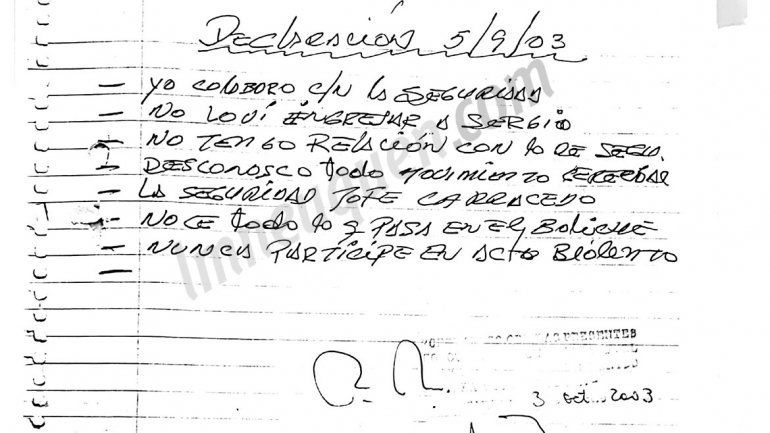 Declaración 5/9/03
- YO COLOBORO C/N LA SSEGURIDAD
- NO LO VÍ INGRESAR A SERGIO
- NO TENGO RELACIÓN CON LO DE SEGU.
- DESCONOSCO todo MOVIMIENTO
- LA SEGURIDAD JOFE CARRACEDO
- NO CE todo lo q PASA EN EL BOLICHE
- NUNCA PARTÍCIPE EN ACTO BIOLENTO
-
lmneuquen.com
3 Oct 2003